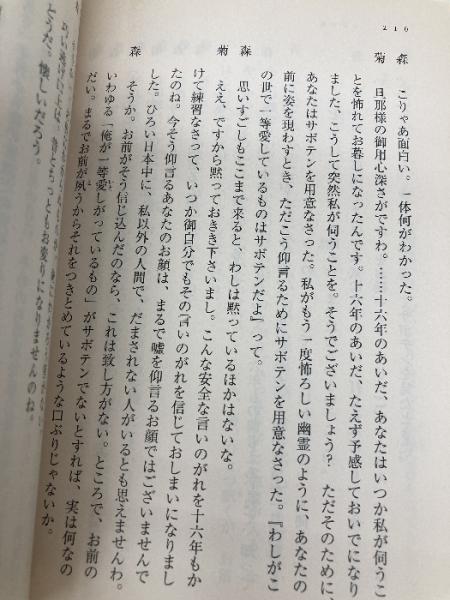 216
森　こりゃあ面白い。一体何がわかった。
菊　旦那様の御用心深さがですわ。……十六年のあいだ、あなたはいつか私が伺うこ
とを怖れてお暮しになったんです。十六年のあいだ、たえず予感しておいでになり
ました、こうして突然私が伺うことを。そうでございましょう？　ただそのために、
あなたはサボテンを用意なさった。私がもう一度怖ろしい幽霊のように、あなたの
前に姿を現わすとき、ただこう仰言るためにサボテンを用意なさった。『わしがこ
の世で一等愛しているものはサボテンだよ』って。
森　思いすごしもここまで来ると、わしは黙っているほかはないな。
菊　ええ、ですから黙っておきき下さいまし。こんな安全な言いのがれを十六年もか
けて練習なさって、いつか御自分でもその言いのがれを信じておしまいになりまし
たのね。今そう仰言るあなたのお顔は、まるで嘘を仰言るお顔ではございませんで
した。ひろい日本中に、私以外の人間で、だまされない人がいるとも思えませんわ。
森　そうか。お前がそう信じ込んだのなら、これは致し方がない。ところで、お前の
いわゆる「俺が一等愛しがっているもの」がサボテンでないとすれば、実は何なの
だい。まるでお前が夙うからそれをつきとめているような口ぶりじゃないか。
ちっともお変りになりませんのね。
どうだ。懐しいだろう。